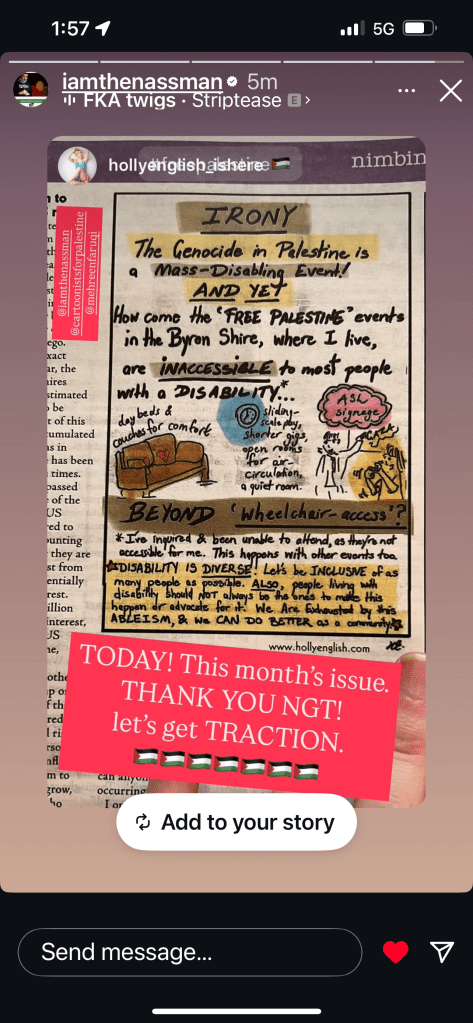 1:57
5G
iamthenassman 5m
FKA twigs · Striptease E >
hollyenglish_ishere 🇵🇸
nimbin
@iamthenassman
@cartoonistsforpalestine
@mehreenfaruqi
IRONY
The Genocide in Palestine is
a Mass-Disabling Event!
AND YET
How come the "FREE PALESTINE" events
in the Byron Shire, where I live,
are INACCESSIBLE to most people
with a DISABILITY...*
day beds &
couches for comfort
sliding-
scale pay,
shorter gigs,
open rooms
for air-
circulation,
a quiet room.
ASL
signage
BEYOND 'Wheelchair-access'?
*I've inquired & been unable to attend, as they're not
accessible for me. This happens with other events too.
DISABILITY IS DIVERSE! Let's be INCLUSIVE of as
many people as possible. ALSO, people living with
disability should NOT always be the ones to make this
happen or advocate for it. We Are Exhausted by this
ABLEISM, & WE CAN DO BETTER as a community
www.hollyenglish.com
to
ego.
xact
ar, the
aires
stimated
o be
t of this
cumulated
as in
has been
times.
passed
of the
US
ed to
ounting
they are
st from
entially
rest.
illion
interest,
US
ne,
othe
f th
red
m to
grow,
can
occurring
TODAY! This month's issue.
THANK YOU NGT!
let's get TRACTION.
🇵🇸🇵🇸🇵🇸🇵🇸🇵🇸🇵🇸🇵🇸
Add to your story
Send message...